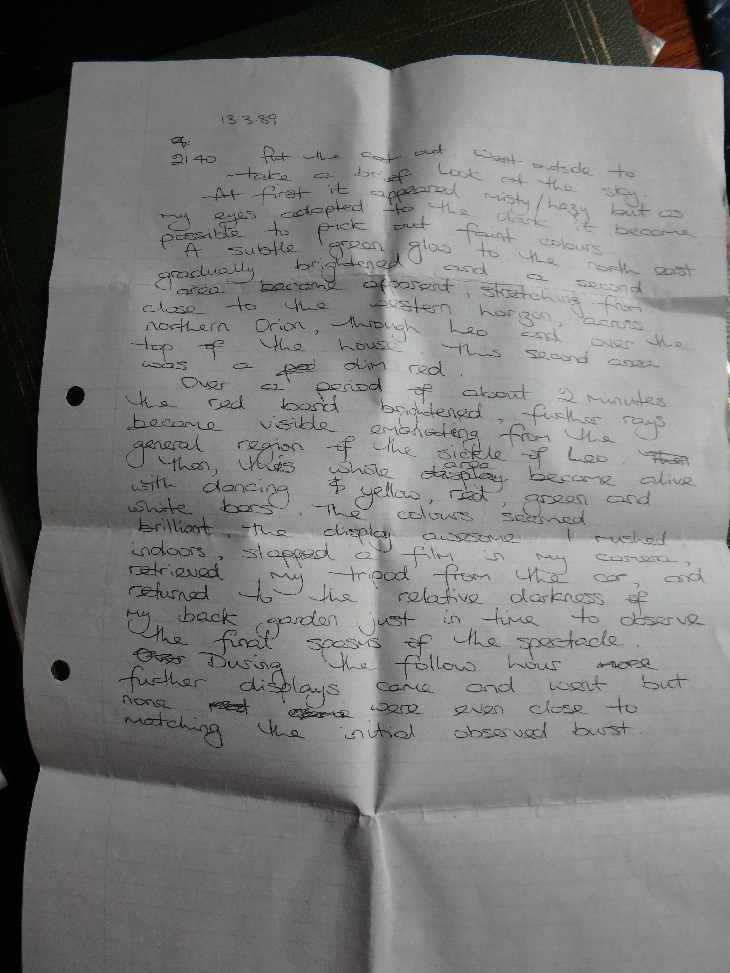 13.3.89
2140 Put the cat out went outside to
take a brief look at the sky.
At first it appeared misty/hazy but as
my eyes adapted to the dark it became
possible to pick out faint colours.
A subtle green glow to the north east
gradually brightened and a second
area became apparent, stretching from
close to the western horizon, across
northern Orion, through Leo and over the
top of the house. This second area
was a dim red.
Over a period of about 2 minutes
the red band brightened, further rays
become visible emanating from the
general region of the sickle of Leo.
Then, this whole area become alive
with dancing yellow, red, green and
white bars. The colours seemed
brilliant, the display awesome. I rushed
indoors, slapped a film in my camera,
retrieved my tripod from the car, and
returned to the relative darkness of
my back garden just in time to observe
the final spasms of the spectacle.
During the follow hour more
further displays came and went but
none were even close to
matching the initial observed burst.